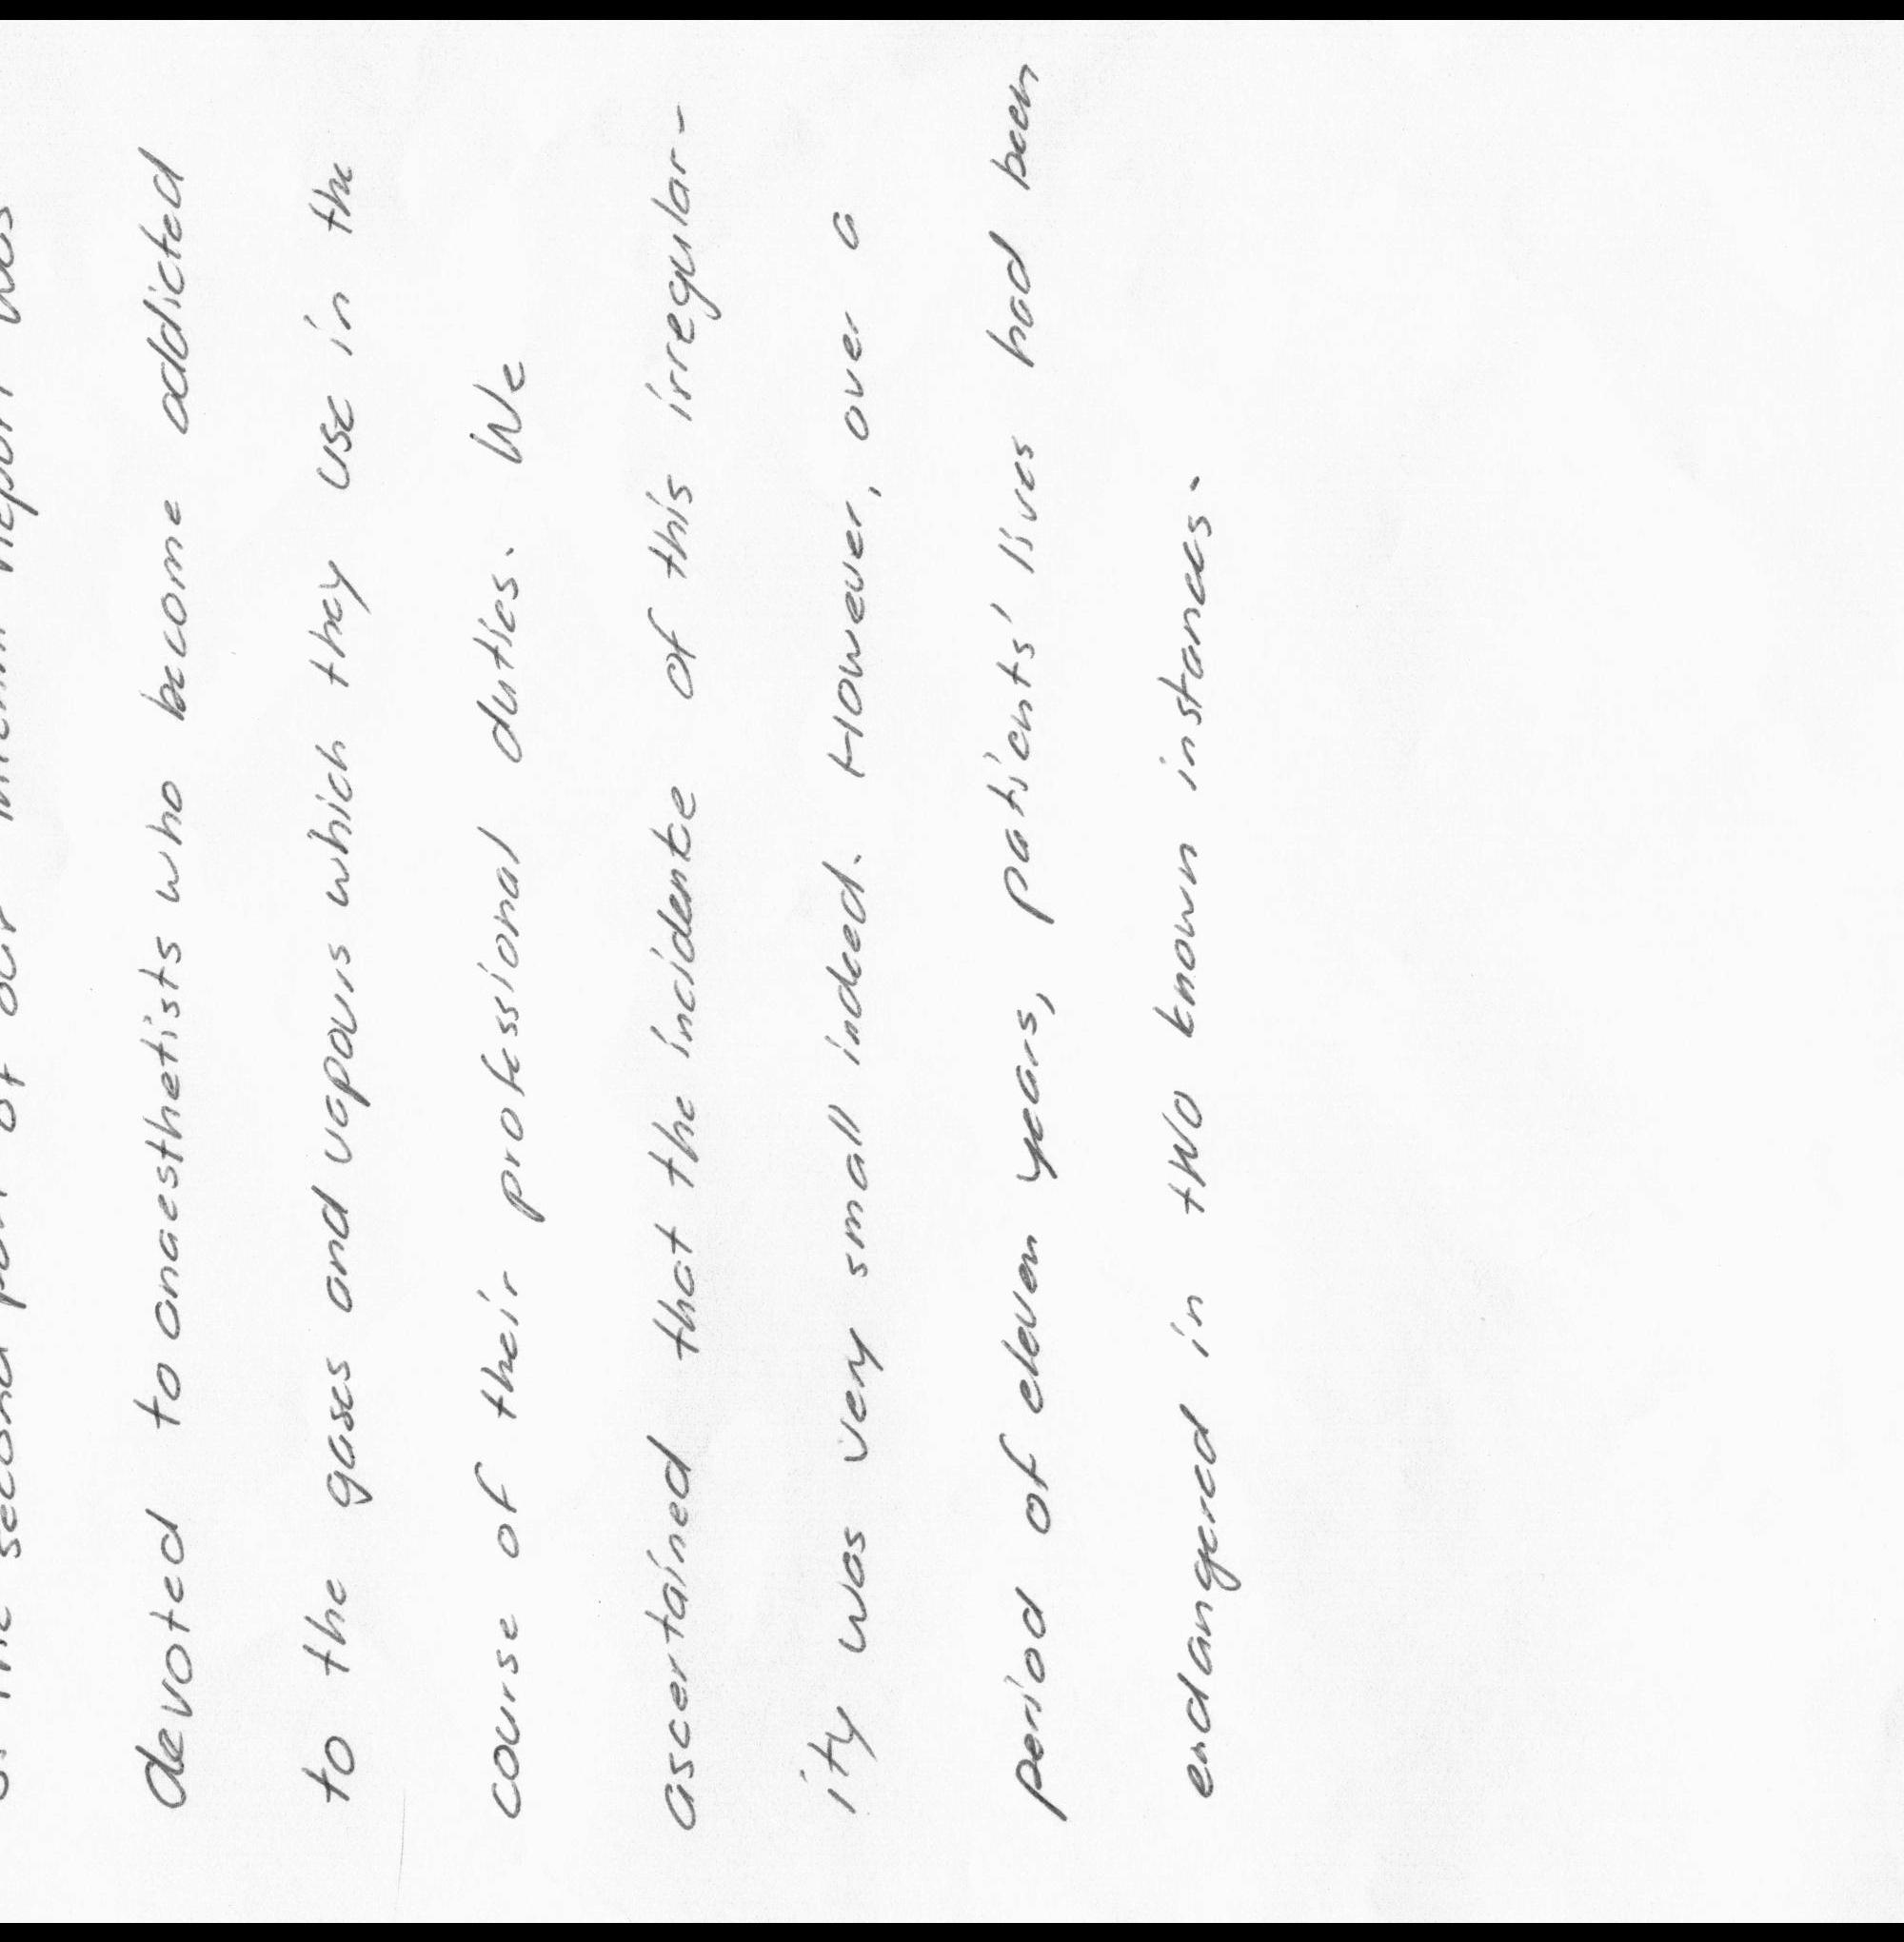 the second part of our interim report was
devoted to anaesthetists who become addicted
to the gases and vapours which they use in the
course of their professional duties. We
ascertained that the incidence of this irregular-
ity was very small indeed. However, over a
period of eleven years, patients' lives had been
endangered in two known instances.